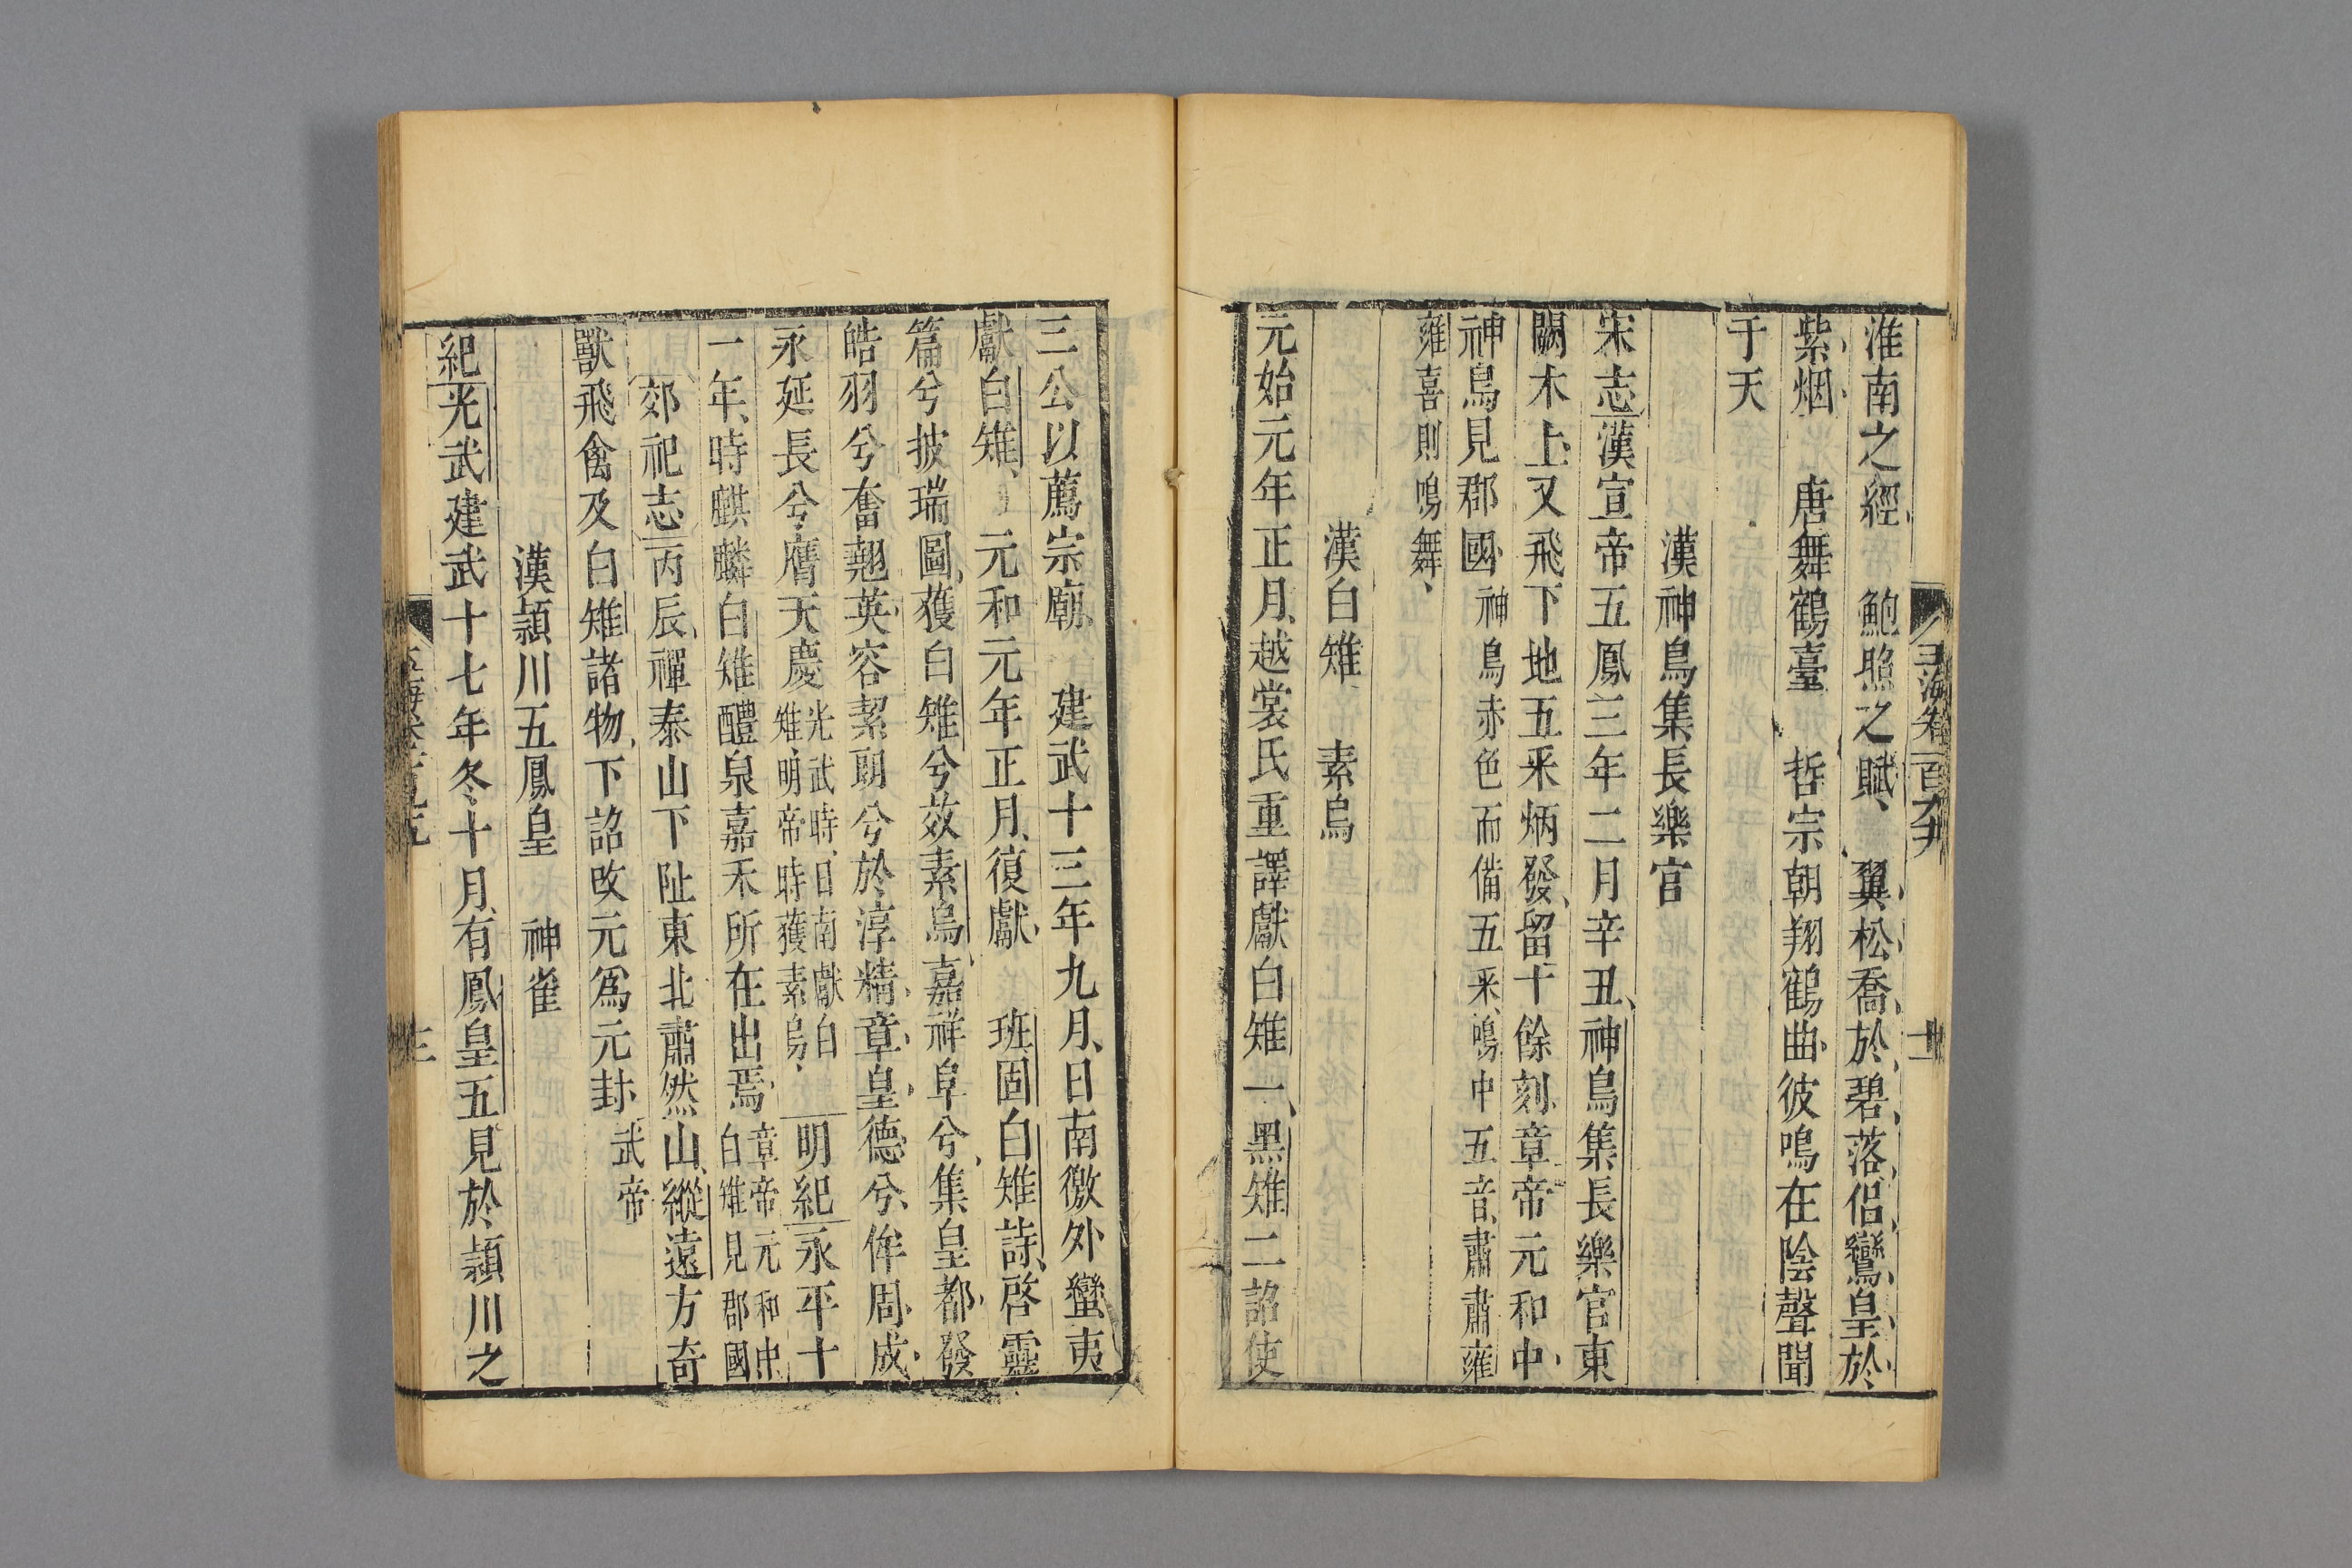 淮南之經　鮑照之賦翼松喬於碧落侶鸞皇於
紫烟　唐舞鶴臺　哲宗朝翔鶴曲彼鳴在陰聲聞
于天
漢神鳥集長樂宮
宋志漢宣帝五鳳三年二月辛丑神鳥集長樂宮東
闕木上又飛下地五采炳發留十餘刻章帝元和中
神鳥見郡國神鳥赤色而備五采鳴中五音肅肅雍
雍喜則鳴舞
漢白雉　素烏
元始元年正月越裳氏重譯獻白雉一黑雉二詔使
三公以薦宗廟　建武十三年九月日南徼外蠻夷
獻白雉　元和元年正月復獻　班固白雉詩啓靈
篇兮披瑞圖獲白雉兮效素烏嘉祥阜兮集皇都發
皓羽兮奮翹英容絜朗兮於淳精章皇德兮侔周成
永延長兮膺天慶光武時日南獻白雉明帝時獲素烏明紀永平十
一年時麒麟白雉醴泉嘉禾所在出焉章帝元和中白雉見郡國
郊祀志丙辰禪泰山下阯東北肅然山縱遠方奇
獸飛禽及白雉諸物下詔改元爲元封武帝
漢潁川五鳳皇　神雀
紀光武建武十七年冬十月有鳳皇五見於潁川之